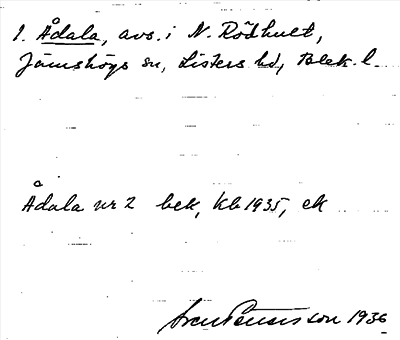 1. Ådala, avs. i N. Rödhult,
Jämshögs sn, Listers hd, Blek. l.
Ådala nr 2 bek, kb 1935, ek
Sven Benson 1936